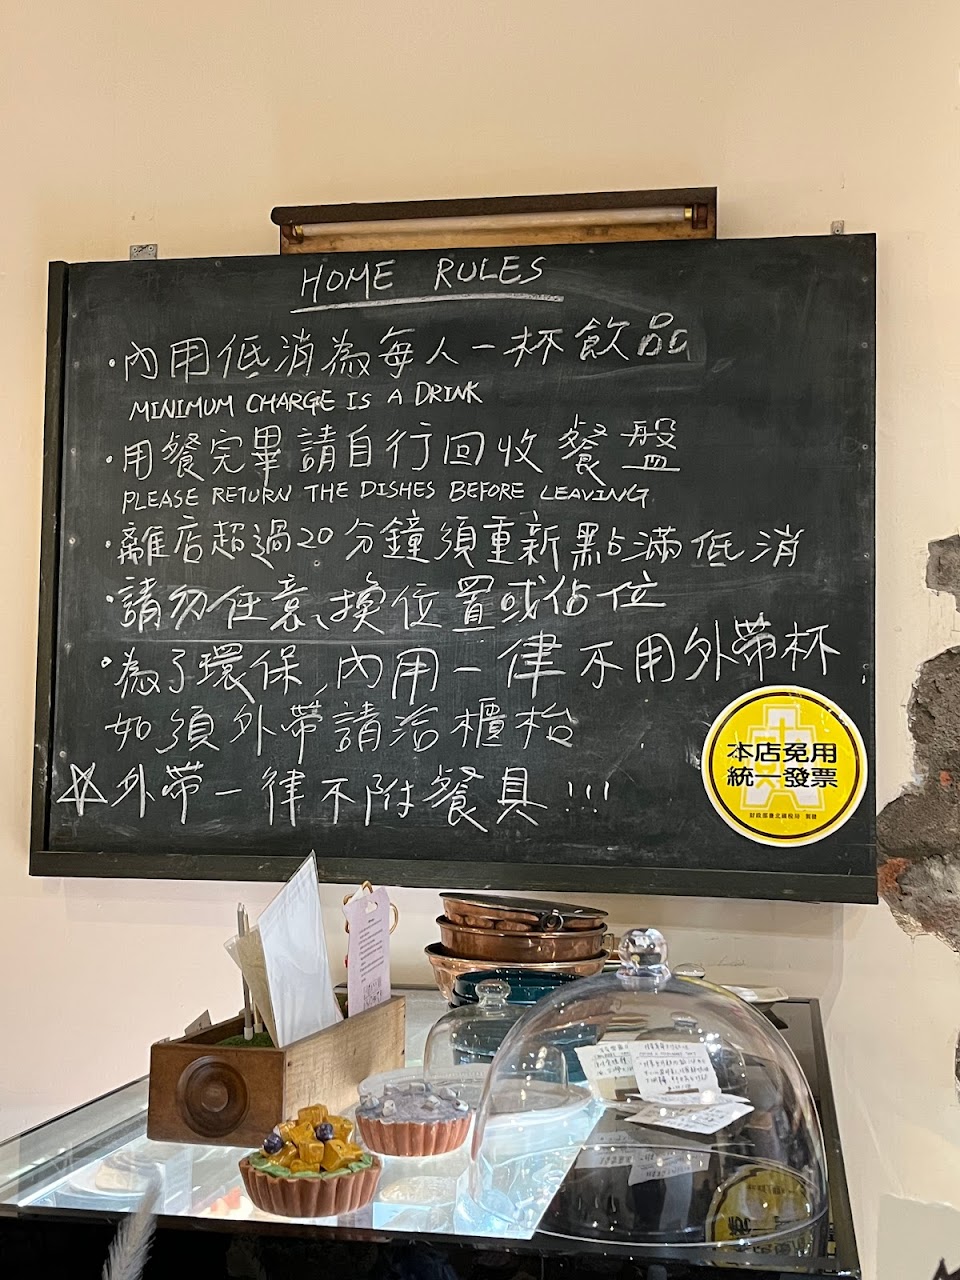 HOME RULES
·內用低消為每人一杯飲品
MINIMUM CHARGE IS A DRINK
·用餐完畢請自行回收餐盤
PLEASE RETURN THE DISHES BEFORE LEAVING
·離店超過20分鐘須重新點滿低消
·請勿任意、換位置或佔位
·為了環保,內用一律不用外帶杯.
如須外帶請洽櫃枱
☆外帶一律不附餐具!!!
本店免用
統一發票
財政部臺北國稅局 製發